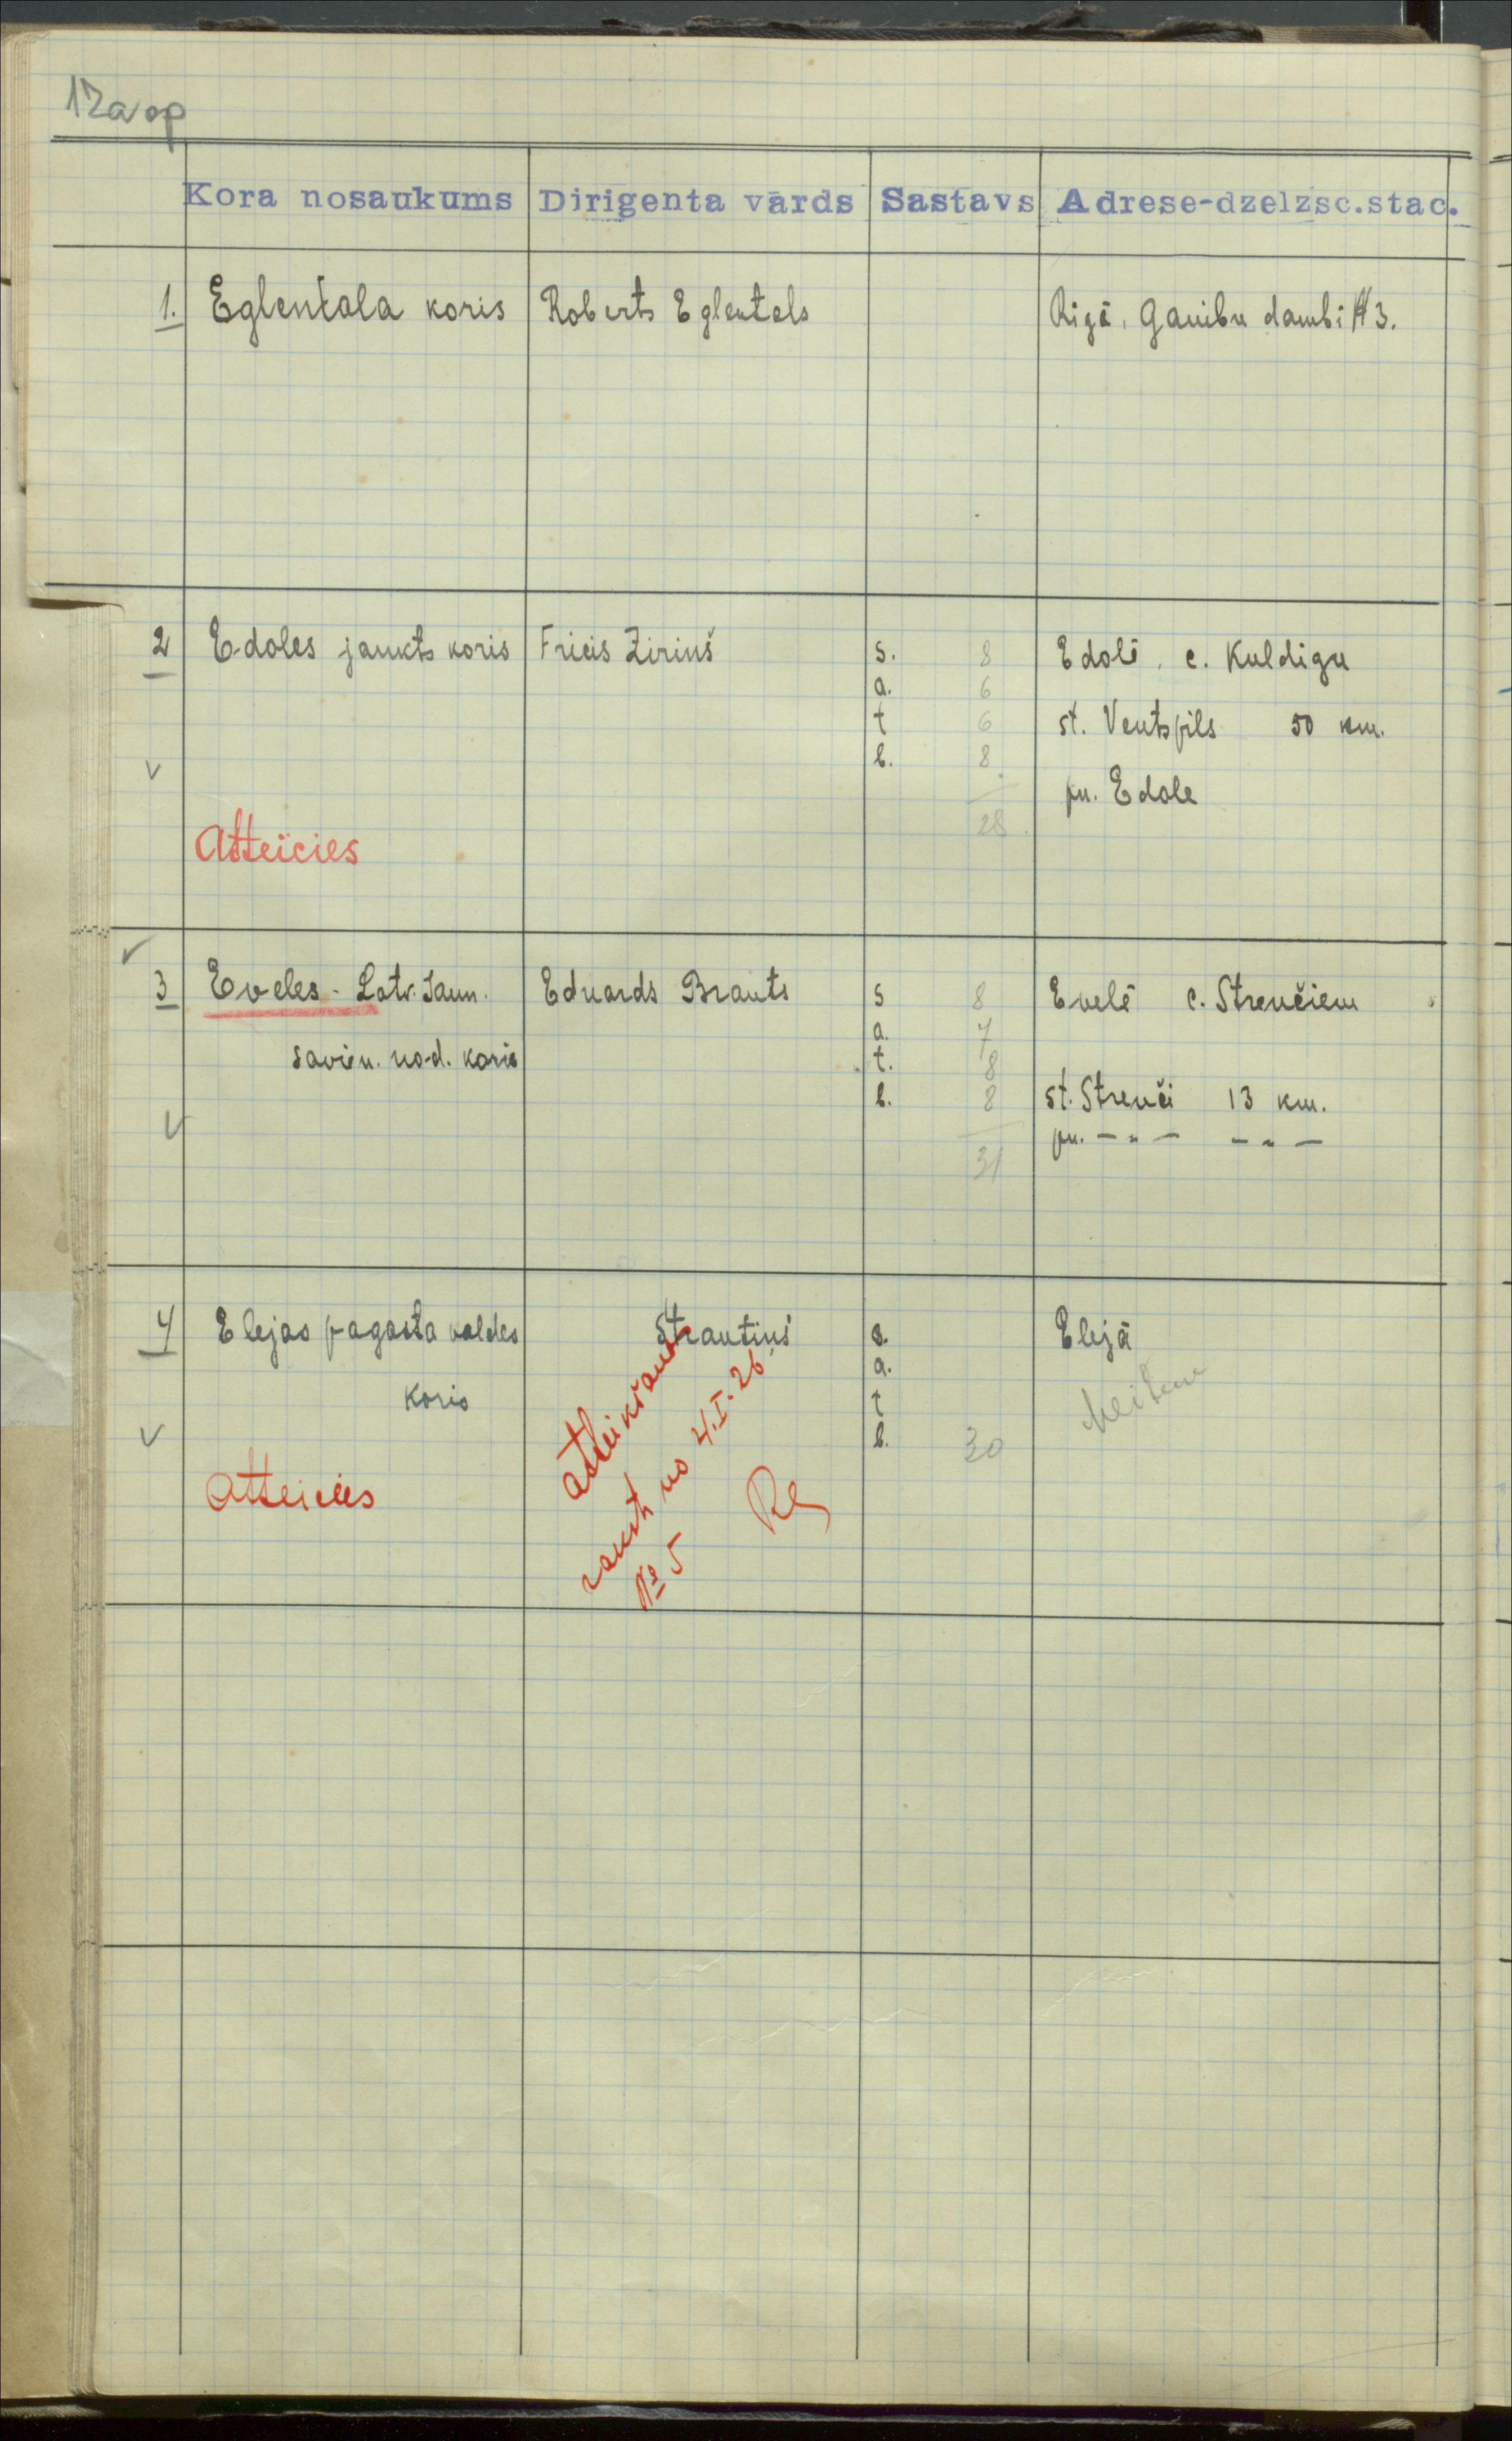 12a op
Kora nosaukums Dirigenta vārds Sastavs Adrese-dzelzsc.stac.
1. Eglentala koris Roberts Eglentals Rigā, Ganibu dambi № 3.
2 Edoles jaukts koris Fricis Ziriņš s. 8 Edolē, c. Kuldigu
a. 6
t 6 st. Ventspils 50 km.
b. 8
pn. Edole
28
Atteicies
3 Eveles - Latv. Jaun. Eduards Brants s 8 Evelē c. Strenčiem
a. 7
savien. nod. koris t. 8
b. 8 st. Strenči 13 km.
pn. - " - - " -
31
4 Elejas pagasta valdes Strautiņš s. Elejā
a.
koris t Meitene
b. 30
Atteicies
atteikšanās
rakst no 4.I.26
№ 5